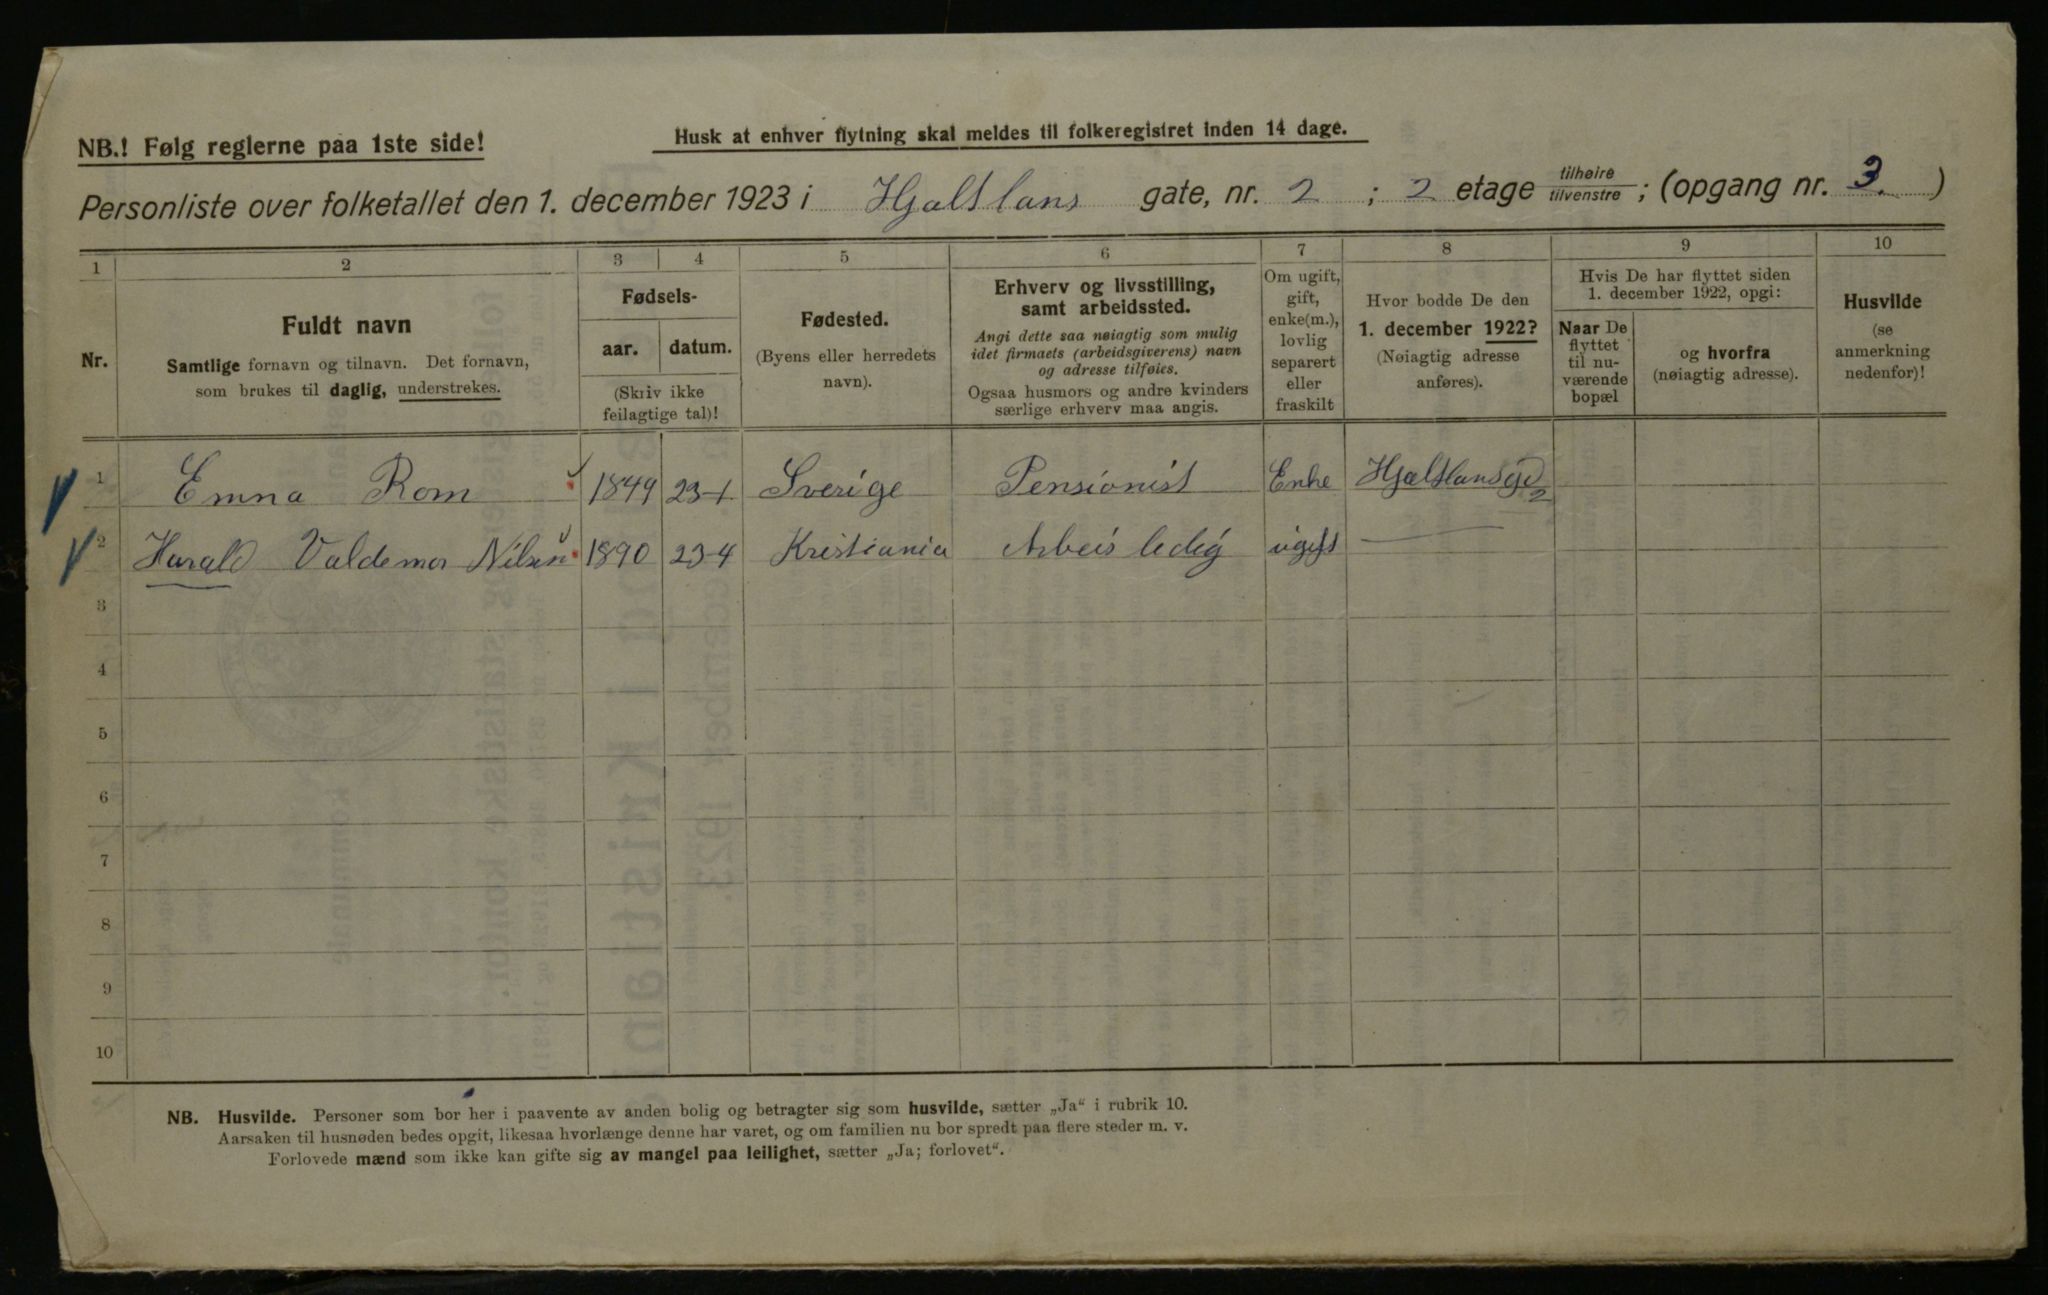 NB.! Følg reglerne paa 1ste side!
Husk at enhver flytning skal meldes til folkeregistret inden 14 dage.
Personliste over folketallet den 1. december 1923 i Hjeltlans gate, nr. 2 ; 2 etage tilhøire/tilvenstre ; (opgang nr. 3. )
1 2 3 4 5 6 7 8 9 10
Nr.
Fuldt navn
Samtlige fornavn og tilnavn. Det fornavn,
som brukes til daglig, understrekes.
Fødsels-
aar. datum.
(Skriv ikke
feilagtige tal)!
Fødested.
(Byens eller herredets
navn).
Erhverv og livsstilling,
samt arbeidssted.
Angi dette saa nøiagtig som mulig
idet firmaets (arbeidsgiverens) navn
og adresse tilføies.
Ogsaa husmors og andre kvinders
særlige erhverv maa angis.
Om ugift,
gift,
enke(m.),
lovlig
separert
eller
fraskilt
Hvor bodde De den
1. december 1922?
(Nøiagtig adresse
anføres).
Hvis De har flyttet siden
1. december 1922, opgi:
Naar De
flyttet
til nu-
værende
bopæl
og hvorfra
(nøiagtig adresse).
Husvilde
(se
anmerkning
nedenfor)!
1 Emna Rom 1849 23-1 Sverige Pensionist Enke Hjeltlansgd 2
2 Harald Valdemar Nilsen 1890 23-4 Kristiania Arbeis ledig ugift —
3
4
5
6
7
8
9
10
NB. Husvilde. Personer som bor her i paavente av anden bolig og betragter sig som husvilde, sætter „Ja“ i rubrik 10.
Aarsaken til husnøden bedes opgit, likesaa hvorlænge denne har varet, og om familien nu bor spredt paa flere steder m. v.
Forlovede mænd som ikke kan gifte sig av mangel paa leilighet, sætter „Ja; forlovet“.